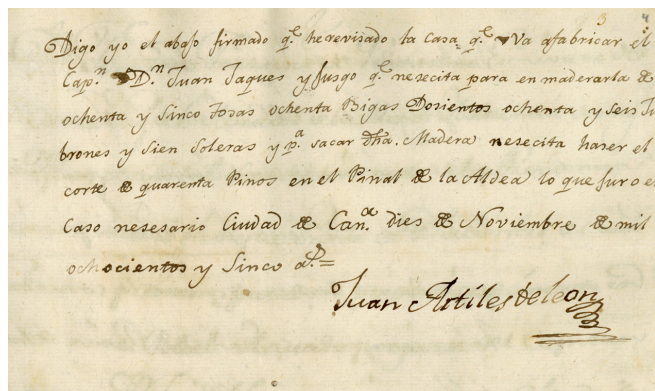 Digo yo el abajo firmado q.e herevisado la Casa q.e va afabricar el
Cap.n D.n Juan Jaques y Jusgo q.e nesecita para en maderarla de
ochenta y Sinco Tosas ochenta Bigas Dosientos ochenta y seis Ju
brones y Sien Soleras y p.a sacar dha. Madera nesecita haser el
corte de quarenta Pinos en el Pinal de la Aldea lo que juro en
Caso nesesario Ciudad de Can.a dies de Noviembre de mil
ochocientos y Sinco a.s =
Juan Artiles de leon